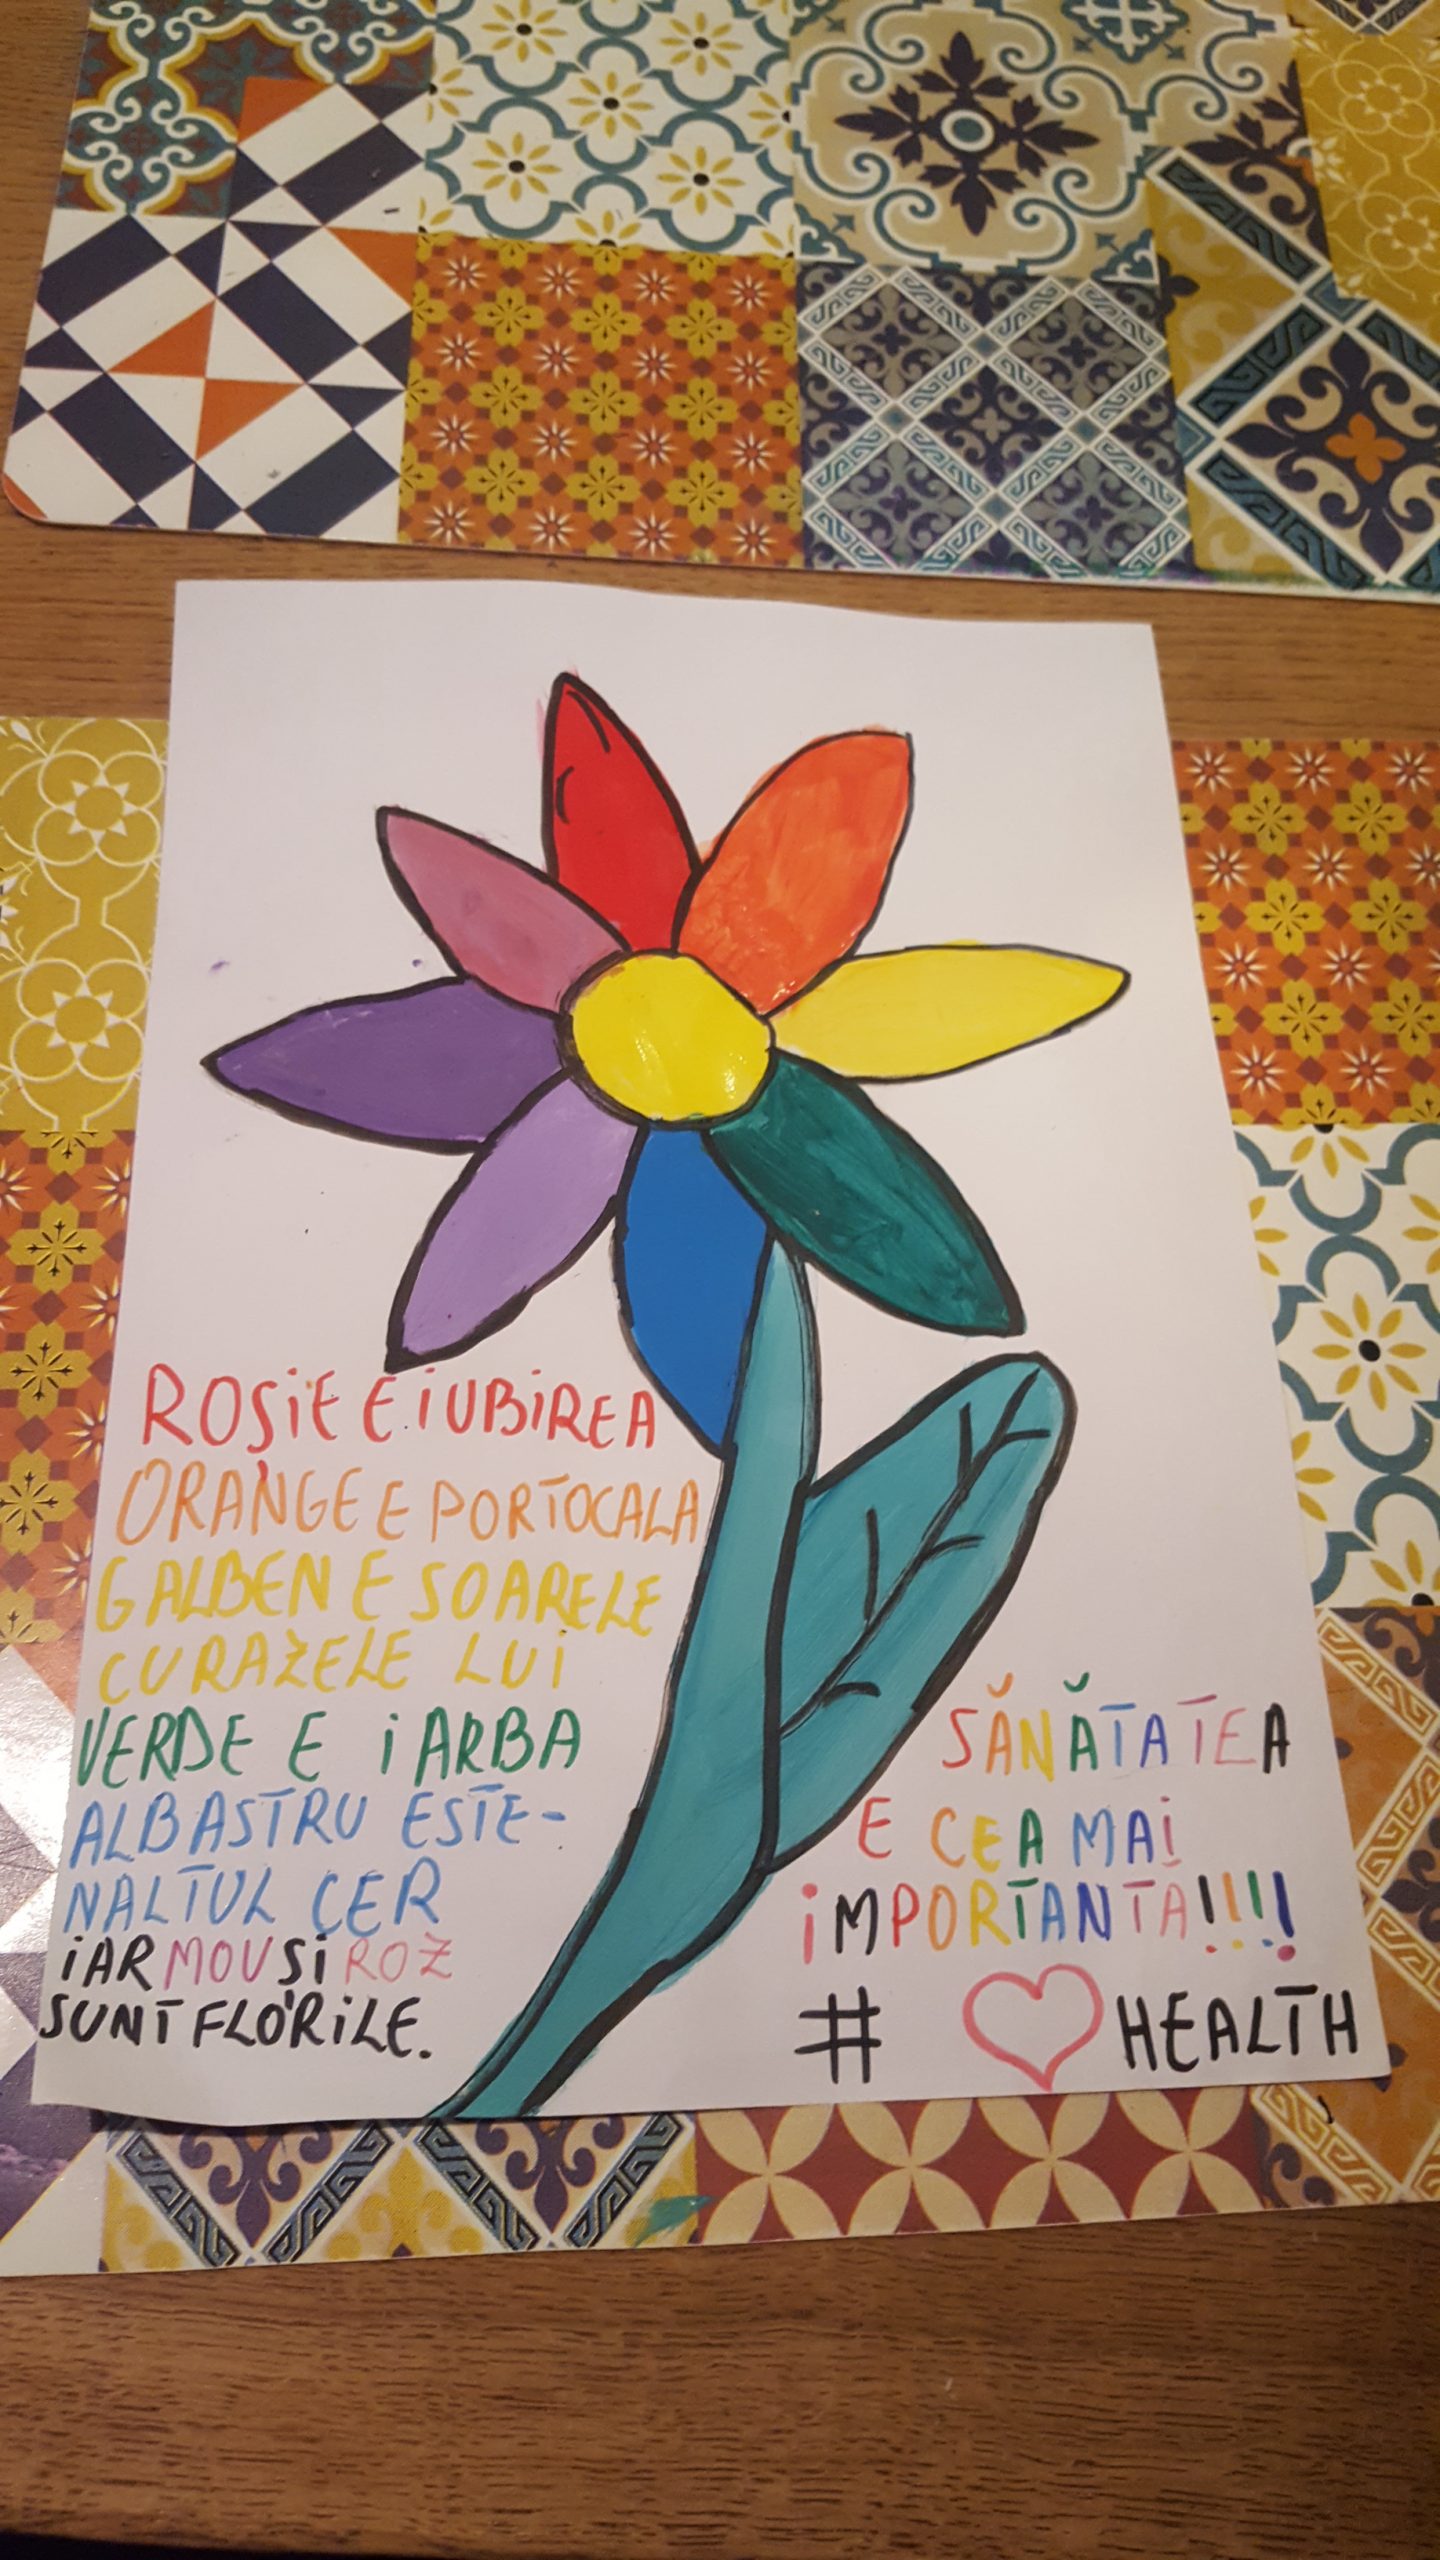 ROȘIE E IUBIREA
ORANGE E PORTOCALA
GALBEN E SOARELE
CU RAZELE LUI
VERDE E IARBA
ALBASTRU ESTE-
NALTUL CER
IAR MOV SI ROZ
SUNT FLORILE.
SĂNĂTATEA
E CEA MAI
IMPORTANTA!!!!
# ♡ HEALTH